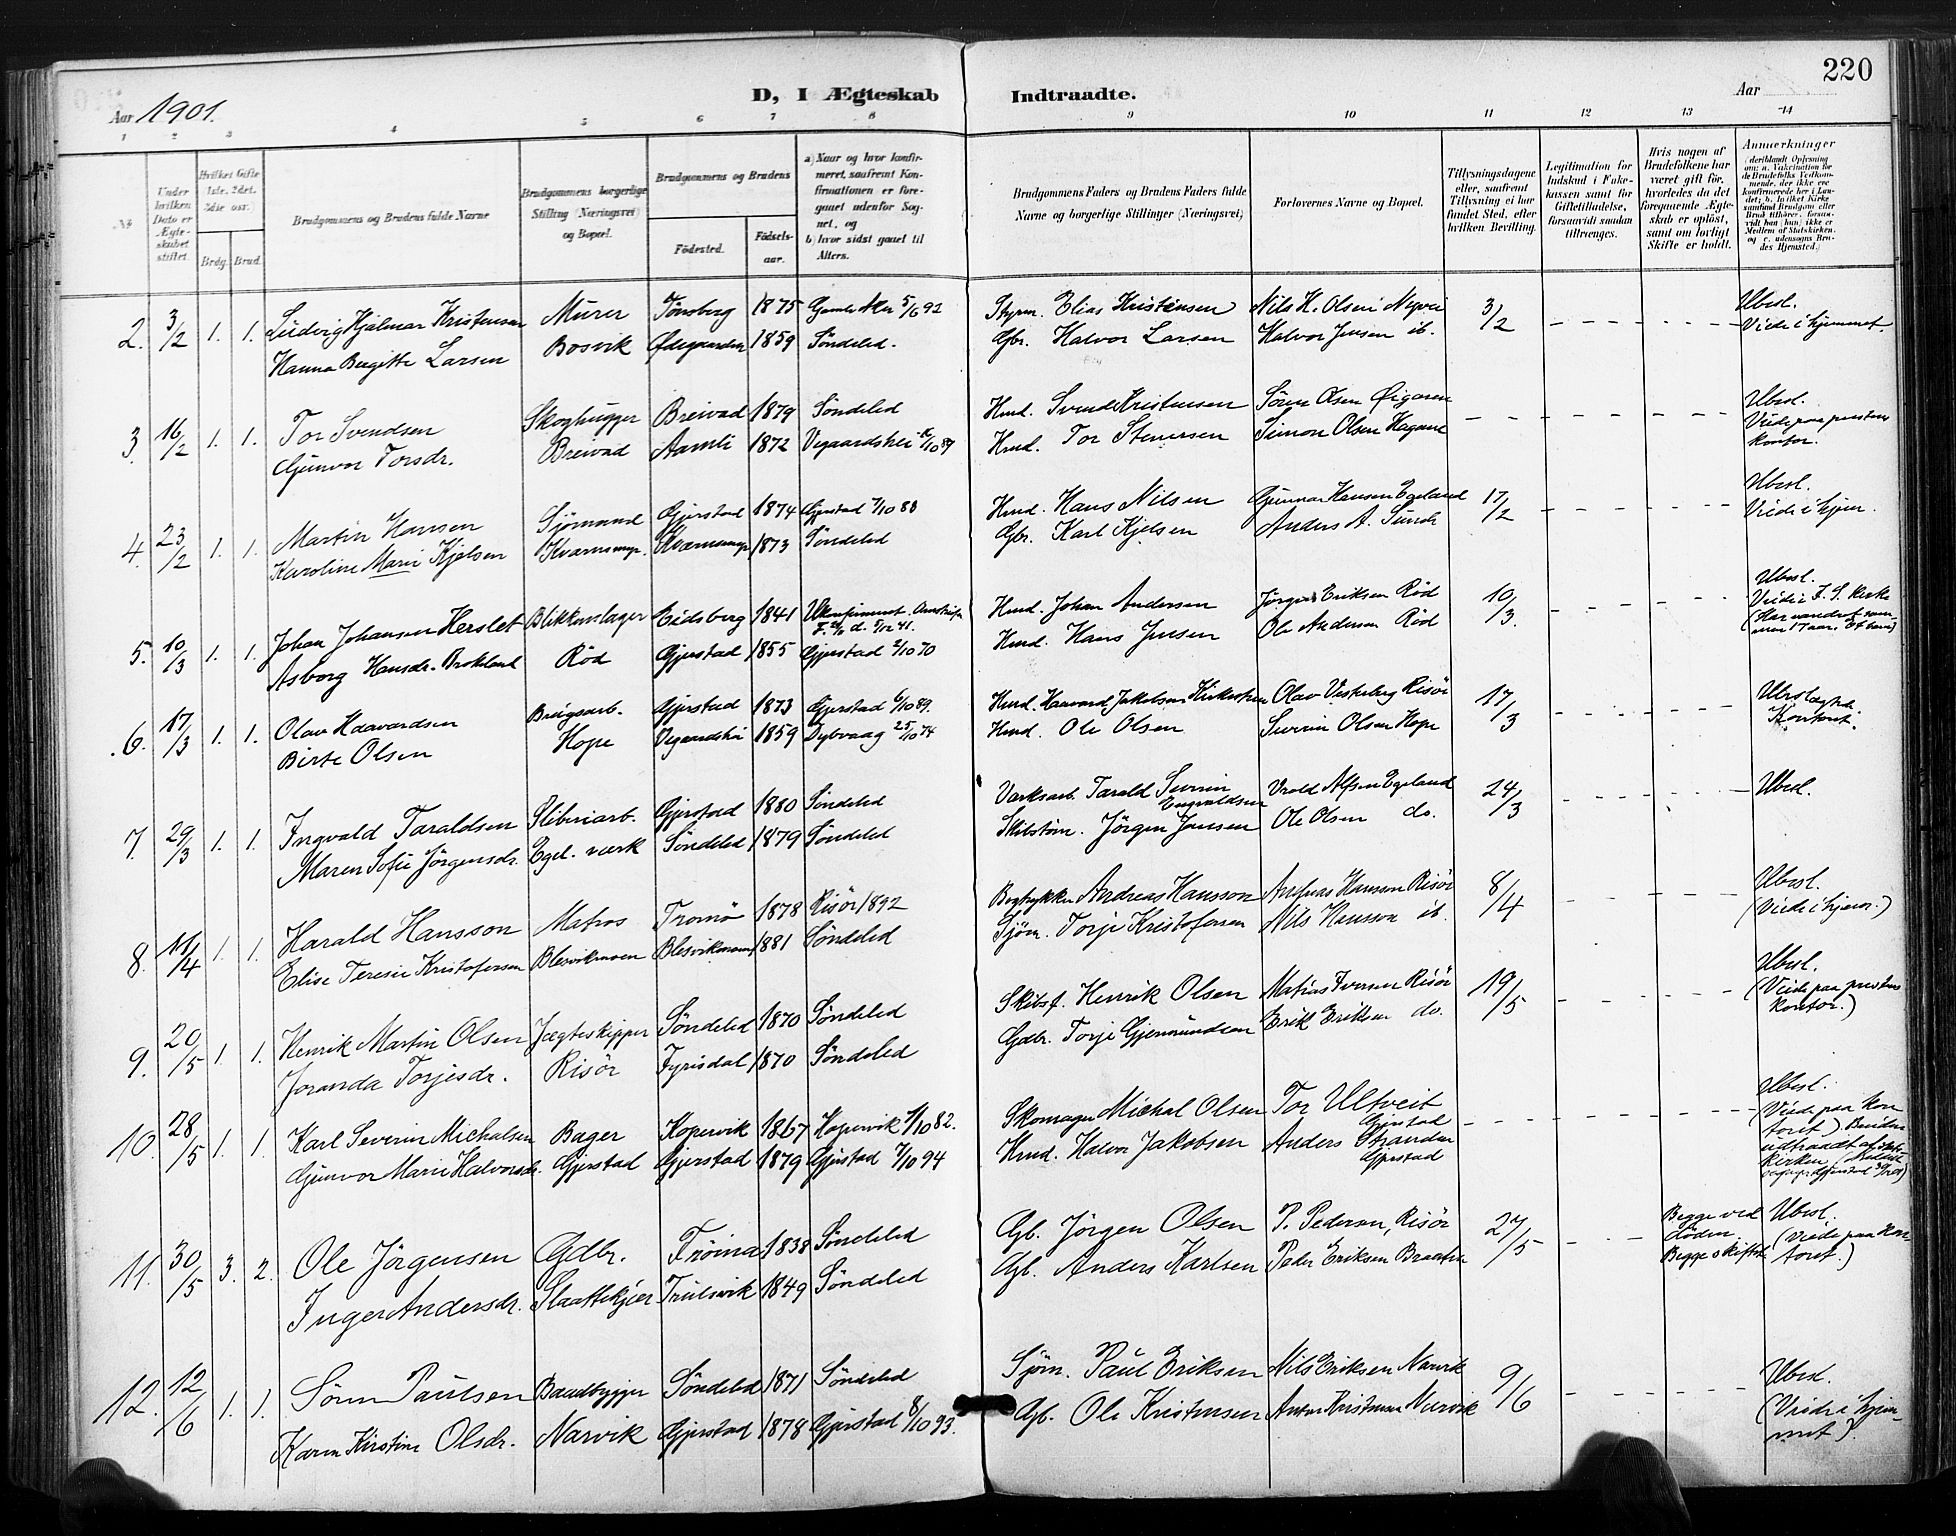 220
D, I Ægteskab Indtraadte.
Aar 1901.
Aar
1 2 3 4 5 6 7 8 9 10 11 12 13 14
No
Under hvilken Dato er Ægteskabet stiftet.
Hvilket Gifte 1ste, 2det, 3die osv.
Brdg. Brud.
Brudgommens og Brudens fulde Navne
Brudgommens borgerlige Stilling (Næringsvei) og Bopæl.
Brudgommens og Brudens
Födested.
Födselsaar.
a) Naar og hvor konfirmeret, saafremt Konfirmationen er foregaaet udenfor Sognet, og
b) hvor sidst gaaet til Alters.
Brudgommens Faders og Brudens Faders fulde Navne og borgerlige Stillinger (Næringsvei)
Forlovernes Navne og Bopæl.
Tillysningsdagene eller, saafremt Tillysning ei har fundet Sted, efter hvilken Bevilling.
Legitimation for Indskud i Enkekassen samt for Giftetilladelse, forsaavidt saadan tiltrænges.
Hvis nogen af Brudefolkene har været gift för, hvorledes da det foregaaende Ægteskab er oplöst, samt om lovligt Skifte er holdt.
Anmerkninger
2. 3/2 1. 1. Ludvig Hjalmar Kristensen Murer Tönsberg 1875 Gamle Aker 5/6 92 Styrm. Elias Kristensen Nils H. Olsen Nyvei 3/2 Ubesl.
Hanna Birgitte Larsen Bosvik Ødegaarden 1859 Söndeled. Gbr. Halvor Larsen Halvor Jensen ib. Viede i hjemmet.
3. 16/2 1. 1. Tor Svendsen Skoghugger Breivad 1879 Söndeled Hmd. Svend Kristensen Sören Olsen Ubesl.
Gunvor Torsdr. Breivad Aamli 1872 Vegaardshei Hmd. Tor Stenersen Simon Olsen Hagane Viede paa prestens kontor.
4. 23/2 1. 1. Martin Hansen Sjömand Gjerstad 1874 Gjerstad 7/10 88 Hmd. Hans Nilsen Gunnar Hansen Egeland 17/2 Ubesl.
Karoline Marie Kjelsen Kvarnsmyr. Kvarnsmyr 1873 Söndeled Gbr. Karl Kjelsen Anders A. Sunde Viede i hjem.
5. 10/3 1. 1. Johan Johansen Herslet Blikkenslager Eidsberg 1841 Ukonfirmeret. Hmd. Johan Andersen Jörgen Eriksen Röd 10/3. Ubesl.
Asborg Hansdr. Brokeland Röd Gjerstad 1855 Gjerstad 2/10 70 Hmd. Hans Jensen Ole Andersen Röd Viede i F. S. kirke
6. 17/3 1. 1. Olav Haavardsen Brugsarb. Gjerstad 1873 Gjerstad 6/10 89. Hmd. Haavard Jakobsen Olav Vesterberg Risör 17/3 Ubeslægtet.
Birte Olsen Hope Vegaardshei 1859 Dybvaag 25/10 74 Hmd. Ole Olsen Severin Olsen Hope Kontoret.
7. 29/3 1. 1. Ingvald Taraldsen Sliberiarb. Gjerstad 1880 Söndeled Værksarb. Tarald Severin Engvaldsen Vrold Alfsen Egeland 24/3 Ubesl.
Maren Sofie Jörgensdr. Egel. værk Söndeled 1879 Söndeled Skibstöm. Jörgen Jensen Ole Olsen do.
8. 11/4 1. 1. Harald Hansson Matros Tromö 1878 Risör 1892 Bogtrykker Andreas Hansson Andreas Hansson Risör 8/4 Ubesl.
Elise Teresie Kristofersen Blesvikmoen Blesvikmoen 1881 Söndeled Sjöm. Torje Kristofersen Nils Hansson ib. (Viede i hjem.)
9. 20/5 1. 1. Henrik Martin Olsen Jægteskipper Söndeled 1870 Söndeled Skibsf. Henrik Olsen Matias Iversen Risör 19/5 Ubesl.
Joranda Torjesdr. Risör Fyrisdal 1870 Söndeled Gdbr. Torje Gjermundsen Erik Eriksen do. (Viede paa prestens kontor.)
10. 28/5 1. 1. Karl Severin Michalsen Bager Kopervik 1867 Kopervik 1/10 82. Skomager Michal Olsen Tor Ultveit Gjerstad Ubesl.
Gunvor Marie Halvorsdr. Gjerstad Gjerstad 1879 Gjerstad 7/10 94 Hmd. Halvor Jakobsen Anders Stranden Gjerstad (Viede paa kontoret)
11. 30/5 3. 2. Ole Jörgensen Gdbr. Fröina 1838 Söndeled Gb. Jörgen Olsen P. Pedersen, Risör 27/5 Begge ved döden Ubesl.
Inger Andersdr. Slaattekjær Trulsvik 1849 Söndeled Gb. Anders Karlsen Peder Eriksen Braaten Begge skiftet (Viede paa kontoret.)
12. 12/6 1. 1. Sören Paulsen Baadbygger Söndeled 1871 Söndeled Sjöm. Paul Eriksen Nils Eriksen Narvik 9/6 Ubesl.
Karen Kirstine Olsdr. Narvik Gjerstad 1878 Gjerstad 8/10 93. Gb. Ole Kristensen Anton Kristensen Narvik (Viede i hjemmet).